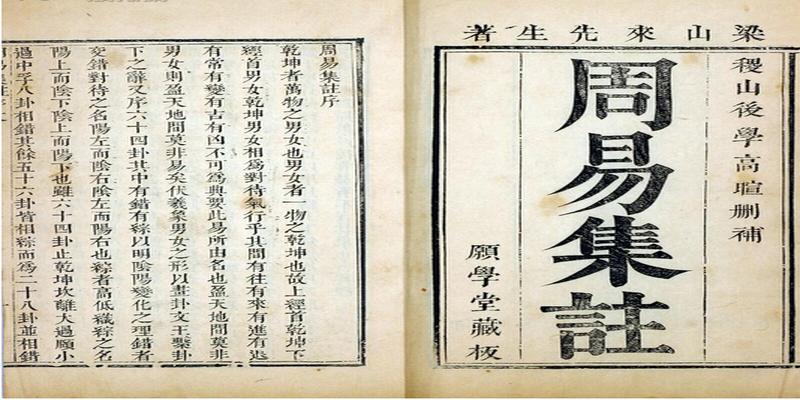 梁山來先生著
稷山後學高暄刪補
周易集註
願學堂藏板
周易集註序
乾坤者萬物之男女也男女者一物之乾坤也故上經首乾坤下
經首男女乾坤男女相為對待氣行乎其間有往有來有進有退
有常有變有吉有凶不可為典要此易所由名也盈天地間莫非
男女則盈天地間莫非易矣伏羲象男女之形以畫卦文王繫卦
下之辭又序六十四卦其中有錯有綜以明陰陽變化之理錯者
交錯對待之名陽左而陰右陰左而陽右也綜者高低織綜之名
陽上而陰下陰上而陽下也雖六十四卦止乾坤坎離大過頤小
過中孚八卦相錯其餘五十六卦皆相綜而為二十八卦並相錯